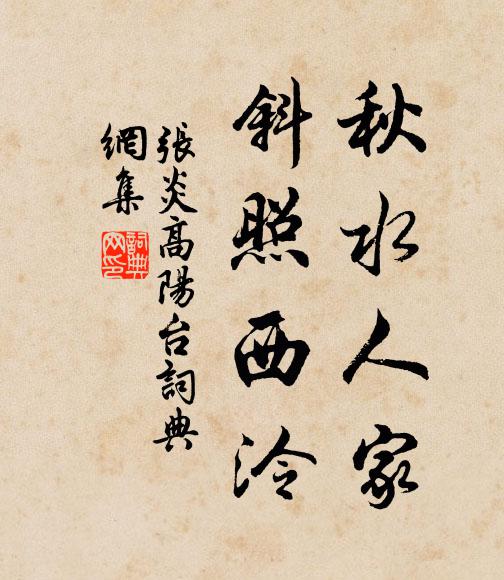 秋水人家
斜照西泠
張炎高陽台詞典
網集
詞典
网印